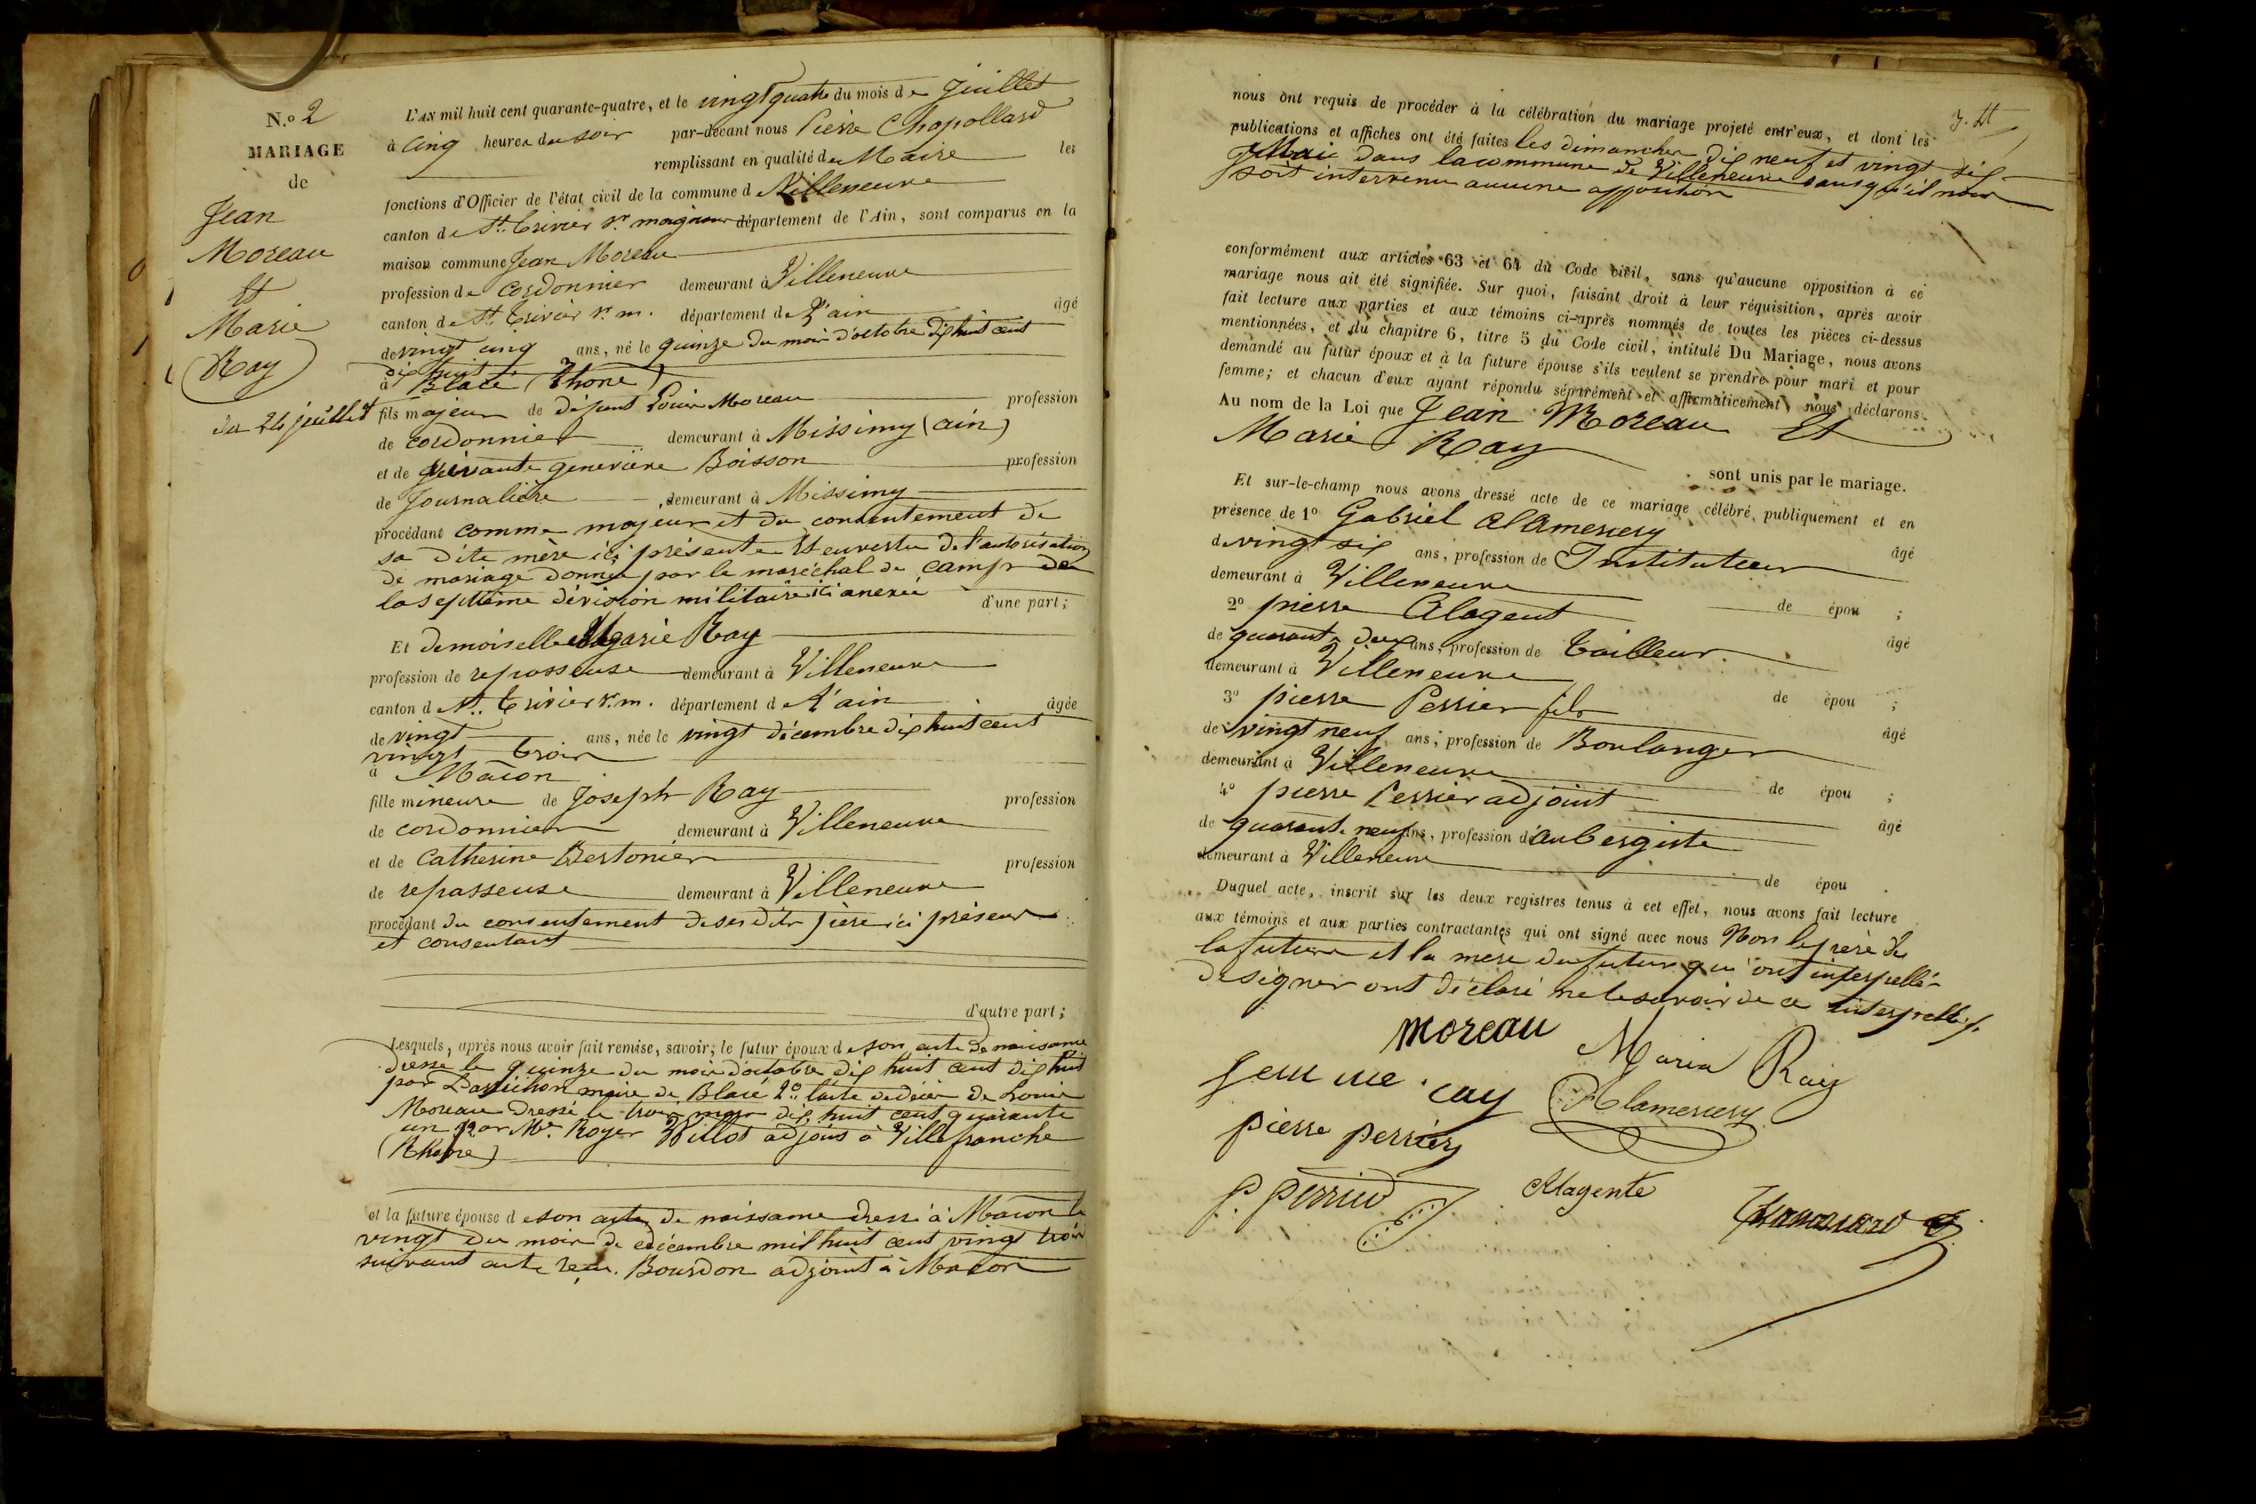 N.o 2
MARIAGE
de
Jean
Moreau
et
Marie
Ray
du 24 juillet
L'AN mil huit cent quarante-quatre, et le vingt quatre du mois de Juillet
à cinq heures du soir par-devant nous Pierre Chapollard
remplissant en qualité de Maire les
fonctions d'Officier de l'état civil de la commune d Villeneuve
canton de St. Trivier sr. moignans département de l'Ain, sont comparus en la
maison commune Jean Moreau
profession de cordonnier demeurant à Villeneuve
canton de St. Trivier sr. m. département de L'ain âgé
de vingt cinq ans, né le quinze du mois d'octobre dix huit cent
dix huit
à Blacé (Rhone)
fils majeur de défunt Louis Moreau profession
de cordonnier demeurant à Missimy (ain)
et de vivante geneviève Boisson profession
de Journalière demeurant à Missimy
procédant comme majeur et du consentement de
sa dite mère ici présente Et en vertu de l'autorisation
de mariage donnée par le maréchal de camp de
la septième division militaire ici anexée d'une part;
Et demoiselle Marie Ray
profession de repasseuse demeurant à Villeneuve
canton d St. Trivier sr. m. département d L'ain âgée
de vingt ans, née le vingt décembre dix huit cent
vingt trois
à Mâcon
fille mineure de Joseph Ray profession
de cordonnier demeurant à Villeneuve
et de Catherine Bertonier profession
de repasseuse demeurant à Villeneuve
procédant du consentement de ses dits père ici présent
et consentant
d'autre part;
Lesquels, après nous avoir fait remise, savoir; le futur époux de son acte de naissance
dressé le quinze du mois d'octobre dix huit cent dix huit
par maire de Blacé 2o. l'acte de décès de Louis
Moreau dressé le trois mars dix huit cent quarante
un par Mr. Royer Willot adjoint à Villefranche
(Rhone)
et la future épouse de son acte de naissance dressé à Macon le
vingt du mois de décembre mil huit cent vingt trois
suivant acte reçu Bourdon adjoint à Macon
nous ont requis de procéder à la célébration du mariage projeté entr'eux, et dont les
publications et affiches ont été faites les dimanches dix neuf et vingt six
Mai dans la commune de Villeneuve sans qu'il nous
soit intervenu aucune opposition
conformément aux articles 63 et 64 du Code civil, sans qu'aucune opposition à ce
mariage nous ait été signifiée. Sur quoi, faisant droit à leur réquisition, après avoir
fait lecture aux parties et aux témoins ci-après nommés de toutes les pièces ci-dessus
mentionnées, et du chapitre 6, titre 5 du Code civil, intitulé Du Mariage, nous avons
demandé au futur époux et à la future épouse s'ils veulent se prendre pour mari et pour
femme; et chacun d'eux ayant répondu séparément et affirmativement, nous déclarons
Au nom de la Loi que Jean Moreau et
Marie Ray
sont unis par le mariage.
Et sur-le-champ nous avons dressé acte de ce mariage célébré publiquement et en
présence de 1o Gabriel Alamercery âgé
de vingt six ans, profession de Instituteur
demeurant à Villeneuve de épou ;
2o pierre Alagent âgé
de quarante deux ans, profession de Tailleur
demeurant à Villeneuve de épou ;
3o pierre Perrier fils âgé
de vingt neuf ans, profession de Boulanger
demeurant à Villeneuve de épou ;
4o pierre Perrier adjoint âgé
de quarante neuf ans, profession d'aubergiste
demeurant à Villeneuve de épou .
Duquel acte, inscrit sur les deux registres tenus à cet effet, nous avons fait lecture
aux témoins et aux parties contractantes qui ont signé avec nous Non le père de
la future et la mere du futur qui ont interpellé
de signer ont déclaré ne le savoir de ce interpellés
moreau
Maria Ray
ray
Alamercery
pierre perrier
P. Perrier
Alagente